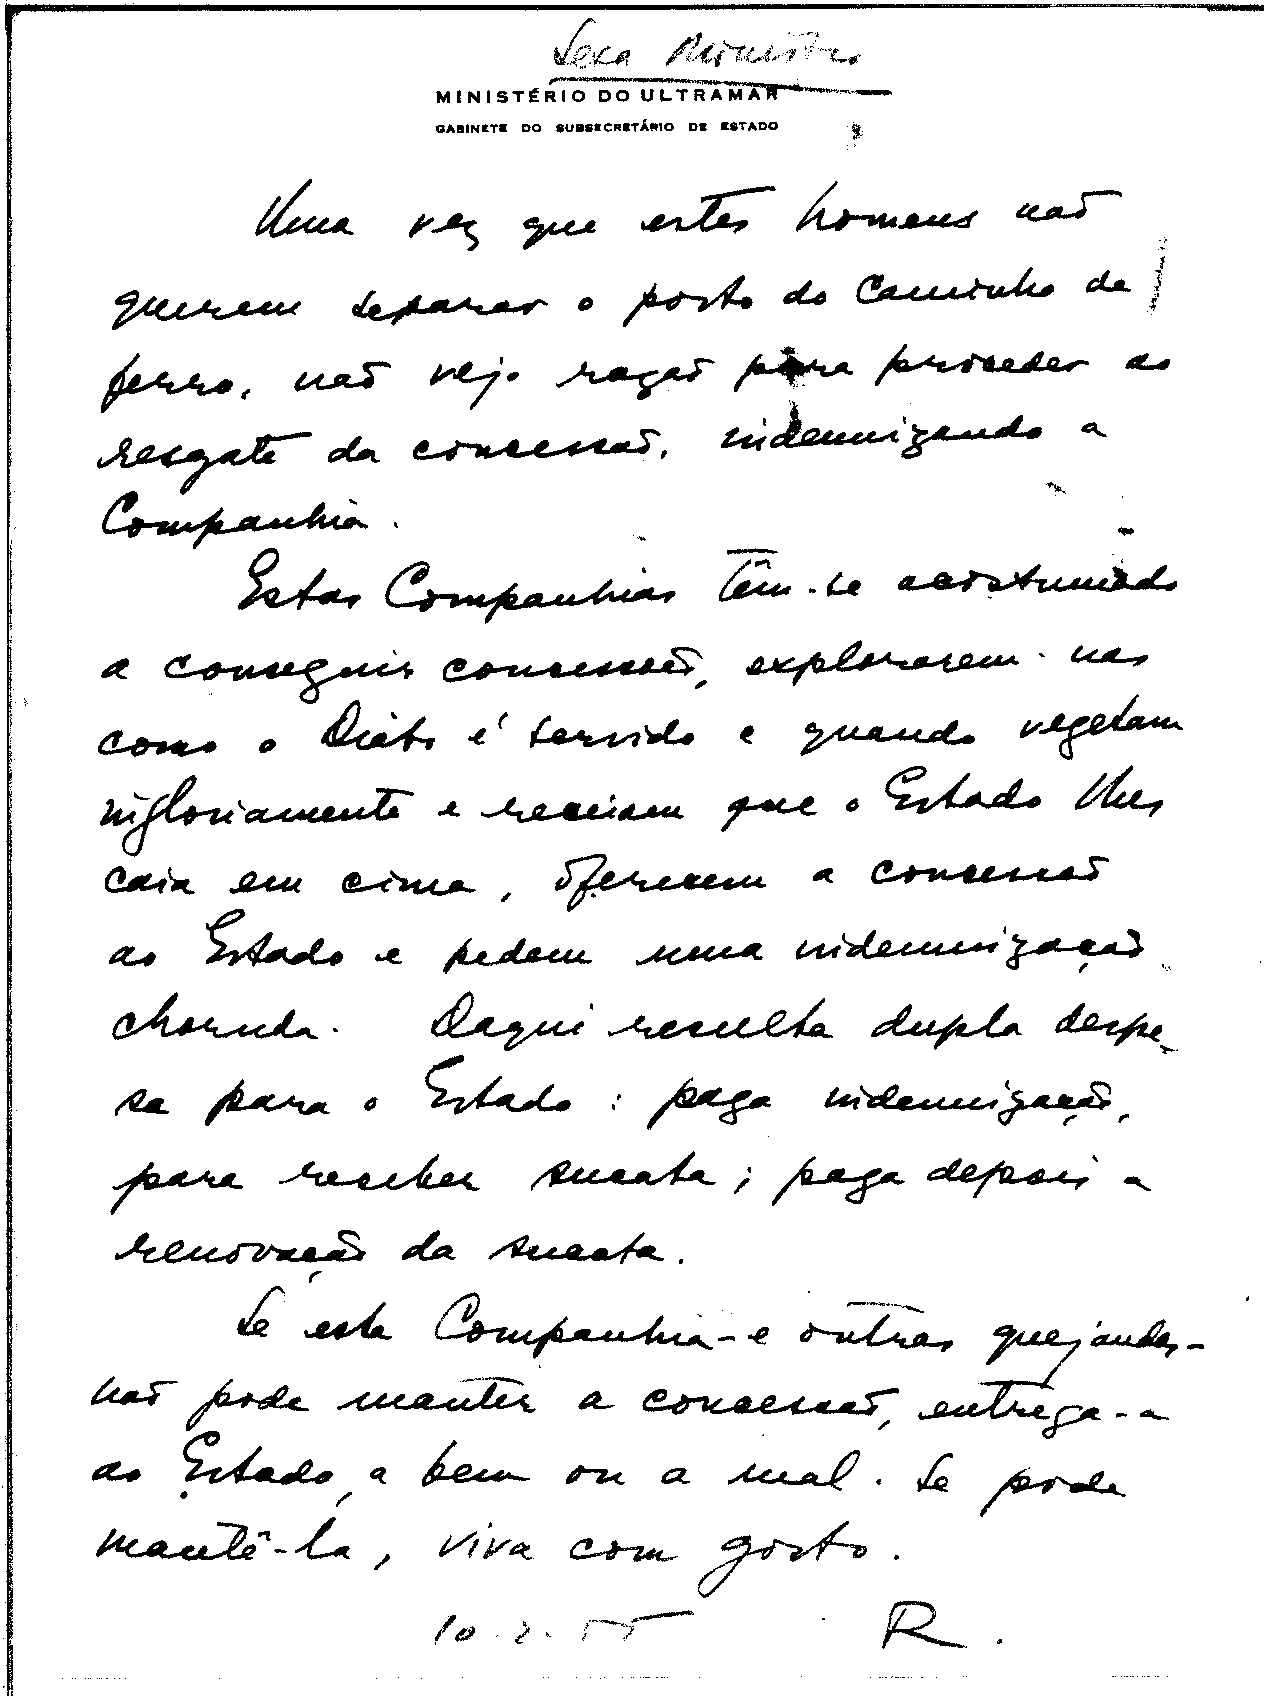 Sexa Ministro
MINISTÉRIO DO ULTRAMAR
GABINETE DO SUBSECRETÁRIO DE ESTADO
Uma vez que estes homens não
querem separar o porto do Caminho de
ferro, não vejo razão para proceder ao
resgate da concessão, indemnizando a
Companhia.
Estas Companhias têm-se acostumado
a conseguir concessões, explorarem-nas
como o Diabo é servido e quando vegetam
ingloriamente e receiam que o Estado lhes
caia em cima, oferecem a concessão
ao Estado e pedem uma indemnização
choruda. Daqui resulta dupla despe-
sa para o Estado: paga indemnização,
para receber sucata; paga depois a
renovação da sucata.
Se esta Companhia - e outras quejandas -
não pode manter a concessão, entrega-a
ao Estado, a bem ou a mal. Se pode
mantê-la, viva com gosto.
10.2.55 R.